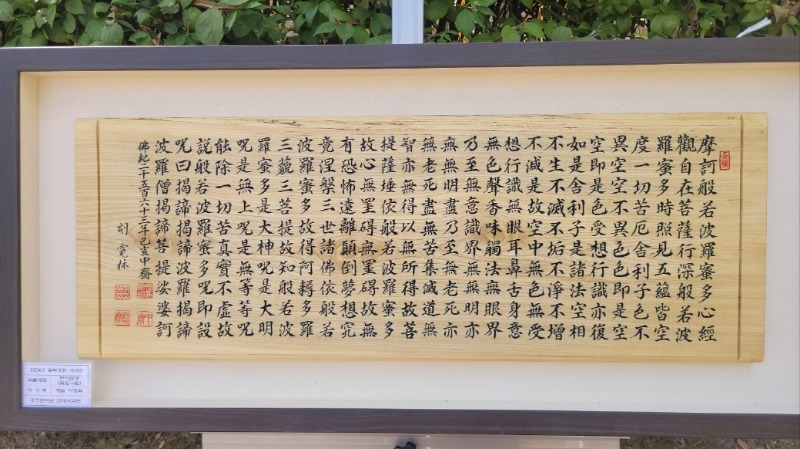 摩訶般若波羅蜜多心經
觀自在菩薩行深般若波
羅蜜多時照見五蘊皆空
度一切苦厄舍利子色不
異空空不異色色即是空
空即是色受想行識亦復
如是舍利子是諸法空相
不生不滅不垢不淨不增
不減是故空中無色無受
想行識無眼耳鼻舌身意
無色聲香味觸法無眼界
乃至無意識界無無明亦
無無明盡乃至無老死亦
無老死盡無苦集滅道無
智亦無得以無所得故菩
提薩埵依般若波羅蜜多
故心無罣碍無罣碍故無
有恐怖遠離顚倒夢想究
竟涅槃三世諸佛依般若
波羅蜜多故得阿耨多羅
三藐三菩提故知般若波
羅蜜多是大神呪是大明
呪是無上呪是無等等呪
能除一切苦真實不虛故
說般若波羅蜜多呪即說
呪曰揭諦揭諦波羅揭諦
波羅僧揭諦菩提娑婆訶
佛紀二千五百六十三年己亥中齋
刻 林